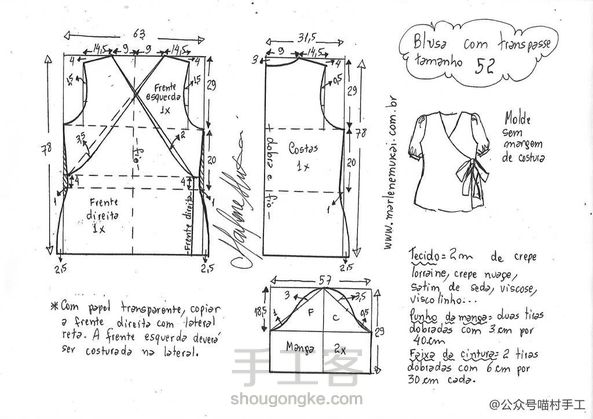 63
14,5 9 9 14,5
4
4
1,5
Frente
esquerda
1x
29
78
3,5
2
fio
20
4
4
1
1
Frente
direita
1x
Frente direita
2,5
2,5
Marlene Mukai
31,5
3
9
14,5
4
0,5
29
Costas
1x
dobra e fio
78
20
1
2,5
www.marlenemukai.com.br
Blusa com transpasse
tamanho 52
Molde
sem
margem
de costura
57
3
3,5
18,5
1
0,5
F
C
29
Manga
2x
* Com papel transparente, copiar
a frente direita com lateral
reta. A frente esquerda deverá
ser costurada na lateral.
Tecido = 2m de crepe
lorraine, crepe nuage,
satim de seda, viscose,
viscolinho...
Punho da manga: duas tiras
dobradas com 3cm por
40cm
Faixa da cintura: 2 tiras
dobradas com 6cm por
30cm cada.
手工客
shougongke.com
@公众号喵村手工